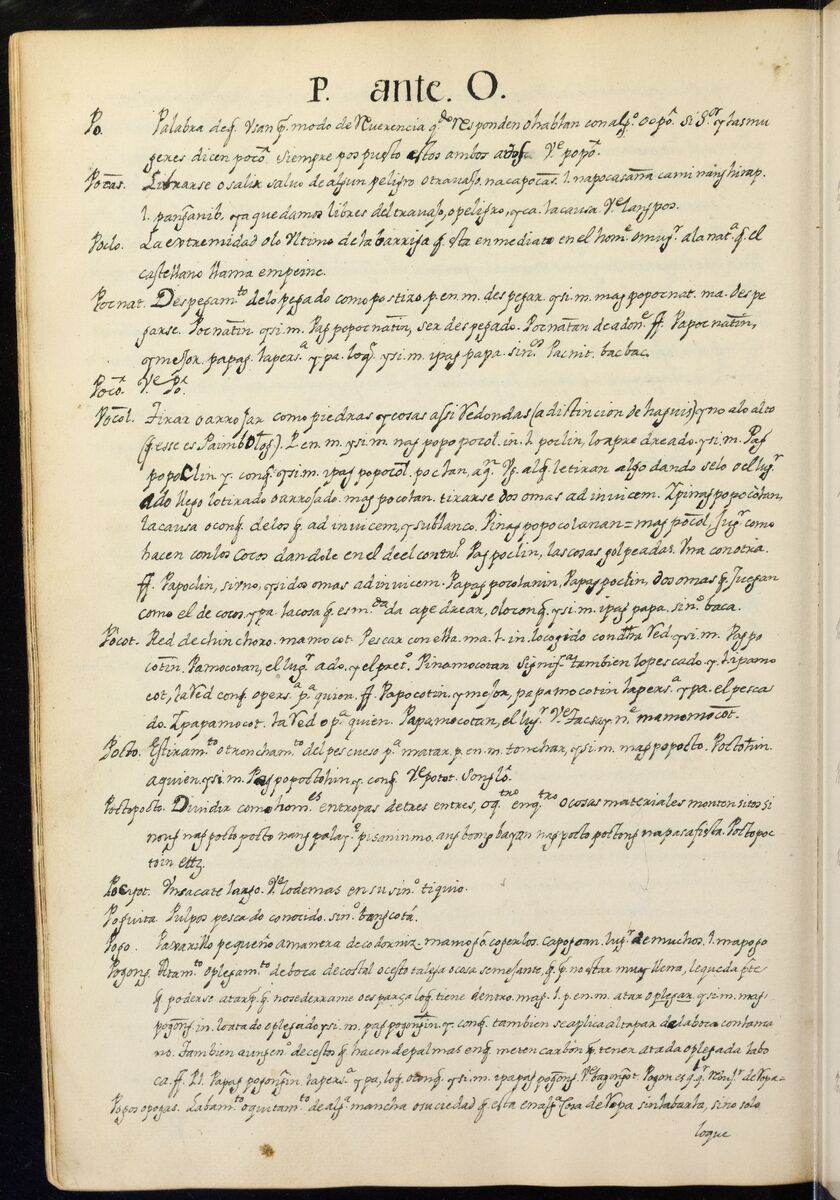 P. ante. O.
Po. Palabra de q̃. Vsan p̃. modo de Reverencia q.do Responden o hablan con alg.o Ocpõ. si S.or y las mu
geres dicen pocõ. siempre pospuesto estos ambos V.e popõ.
Pocas. Librarse o salir salvo de algun peligro o travajo. na capocas. l. napocasaña caminanghirap.
l. panganib, ya quedamos libres del travajo, o peligro, yca. la causa. V.e langpos.
Poclo. La extremidad o lo Ultimo de la barriga q̃. sta en mediato en el hom.e o mug.r a la nat.a q̃. el
castellano llama empeine.
Pocnat. Despegam.to de lo pegado como postizo p. en. m. despegar. ysi. m. mag popocnat. ma. despe
garse. Pocnatin ysi. m. Pag popocnatin, ser despegado. Pocnatan de adon.e ff. Papocnatin,
ymejor. papag. la pers.a y pa. loq̃. ysi. m. ipag papa. sin.o Pacnit. bacbac.
Pocõ. V.e Po.
Pocol. Tirar o arrojar como piedras y cosas assi Redondas (a distincion de haguis) y no a lo alto
(q̃ esse es Paimbolog). P. en. m. ysi. m. nag popo pocol. in. l. poclin, lo apedreado. ysi. m. Pag
popoclin y. conq̃. ysi. m. ipag popocol. poctan, a q.n Vs. alg. le tiran algo dando selo o el lug.r
ado llego lo tirado o arrojado. mag pocolan. tirarse dos o mas ad invicem. Ipinag popocolan,
la causa o conq̃. de los q̃. ad invicem, y su blanco. Pinag popocolanan = mag pocol, Jug.r como
hacen con los Cocos dandole en el de el contr.o Pag poclin, las cosas golpeadas. Una con otra.
ff. Papoclin, si vno, y si dos o mas ad invicem. Papag pocolanin, Papag poclin, dos o mas q̃. Juegan
como el de cocos, y pa. la cosa q̃. es m.da da apedrear, o lo conq̃. ysi. m. ipag papa. sin.o baca.
Pocot. Red de chinchoro. mamocot. Pescar con ella. ma. l. in. lo cogido con dha Red. ysi. m. Pag po
cotin. Pamocotan, el lug.r ado. y el pret.o Pinamocotan signif.a tambien lo pescado. y hipamo
cot, la Red conq̃. o pers.a p.a quien. ff. Papocotin. y mejor, papamocotin la pers.a y pa. el pesca
do. Ipapamocot. la Red o p.a quien. Papamocotan, el lug.r V.e Tacsay. n.o mamomocot.
Pocto. Estiram.to o troncham.to del pescueso p.a matar. p. en. m. tonchar, ysi. m. mag popocto. Poctohin.
a quien. ysi. m. Pag popoctohin y. conq̃. V.e potot. songlo.
Poctopocto. Dividir como hom.es en tropas de tres en tres, o q.tro en q.tro o cosas materiales montonsitos si
nong nag pocto pocto nang palay. pisaninmo. ang bong bayan nag pocto poctong napasafista. Poctopoc
toin ettz.
Pocyot. Un sacate largo. V.e lo demas en su sin.o tiquio.
Poguita. Pulpos pescado conocido. sin.o bangcota.
Pogo. Paxarillo pequeño a manera de codorniz. mamogo cogerlos. Capogoan. lug.r de muchos. l. mapogo
Pogong. Atam.to o plegam.to de boca de costal o cesto talega o cosa semejante, q̃. p.r no star muy llena, le queda p.te
q̃. poderse atar p.a q̃. no se derrame o es parça loq̃. tiene dentro. mag. l. p. en. m. atar o plegar ysi. m. mag.
pogong. in. lo atado o plegado ysi. m. pag pogongin. y. conq̃. tambien se aplica al tapar de la boca con la ma
no. Tambien a un gen.o de cesto q̃. hacen de palmas en q̃. meten carbon p.r tener atada o plegada la bo
ca. ff. Pl. Papag pogongin. la pers.a y pa, loq̃. o conq̃. ysi. m. ipapag pogong. V.e bagongot. Pogong
Pogospogas. Labam.to o quitam.to de alg.a mancha o suciedad q̃. esta en alg.a Cosa de Ropa sin labarla, sino solo
loque